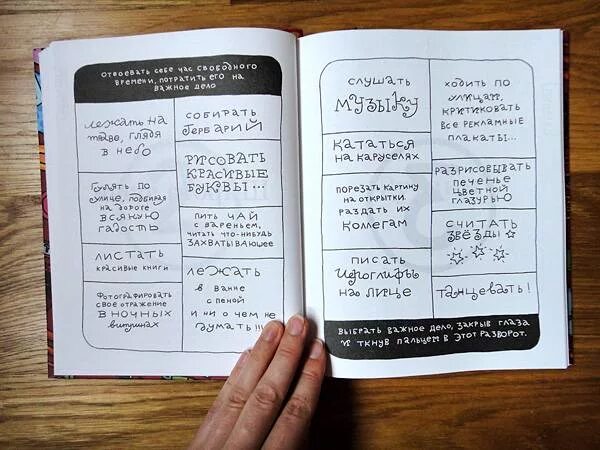 ОТВОЕВАТЬ СЕБЕ ЧАС СВОБОДНОГО
ВРЕМЕНИ, ПОТРАТИТЬ ЕГО НА
ВАЖНОЕ ДЕЛО
ЛЕЖАТЬ НА
ТРАВЕ, ГЛЯДЯ
В НЕБО
ГУЛЯТЬ ПО
УЛИЦЕ, ПОДБИРАЯ
НА ДОРОГЕ
ВСЯКУЮ
ГАДОСТЬ
ЛИСТАТЬ
КРАСИВЫЕ КНИГИ
ФОТОГРАФИРОВАТЬ
СВОЕ ОТРАЖЕНИЕ
В НОЧНЫХ
ВИТРИНАХ
СОБИРАТЬ
ГЕРБАРИЙ
РИСОВАТЬ
КРАСИВЫЕ
БУКВЫ...
ПИТЬ ЧАЙ
С ВАРЕНЬЕМ,
ЧИТАТЬ ЧТО-НИБУДЬ
ЗАХВАТЫВАЮЩЕЕ
ЛЕЖАТЬ
В ВАННЕ
С ПЕНОЙ
И НИ О ЧЕМ НЕ
ДУМАТЬ!!!
СЛУШАТЬ
МУЗЫКУ
КАТАТЬСЯ
НА КАРУСЕЛЯХ
ПОРЕЗАТЬ КАРТИНУ
НА ОТКРЫТКИ,
РАЗДАТЬ ИХ
КОЛЛЕГАМ
ПИСАТЬ
ИЕРОГЛИФЫ
НА ЛИЦЕ
ХОДИТЬ ПО
УЛИЦАМ,
КРИТИКОВАТЬ
ВСЕ РЕКЛАМНЫЕ
ПЛАКАТЫ...
РАЗРИСОВЫВАТЬ
ПЕЧЕНЬЕ
ЦВЕТНОЙ
ГЛАЗУРЬЮ
СЧИТАТЬ
ЗВЁЗДЫ
ТАНЦЕВАТЬ!
ВЫБРАТЬ ВАЖНОЕ ДЕЛО, ЗАКРЫВ ГЛАЗА
И ТКНУВ ПАЛЬЦЕМ В ЭТОТ РАЗВОРОТ.